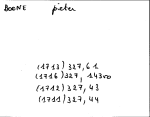 BOONE pieter
(1713) 327, 61
(1716) 327, 143vo
(1712) 327, 43
(1711) 327, 44